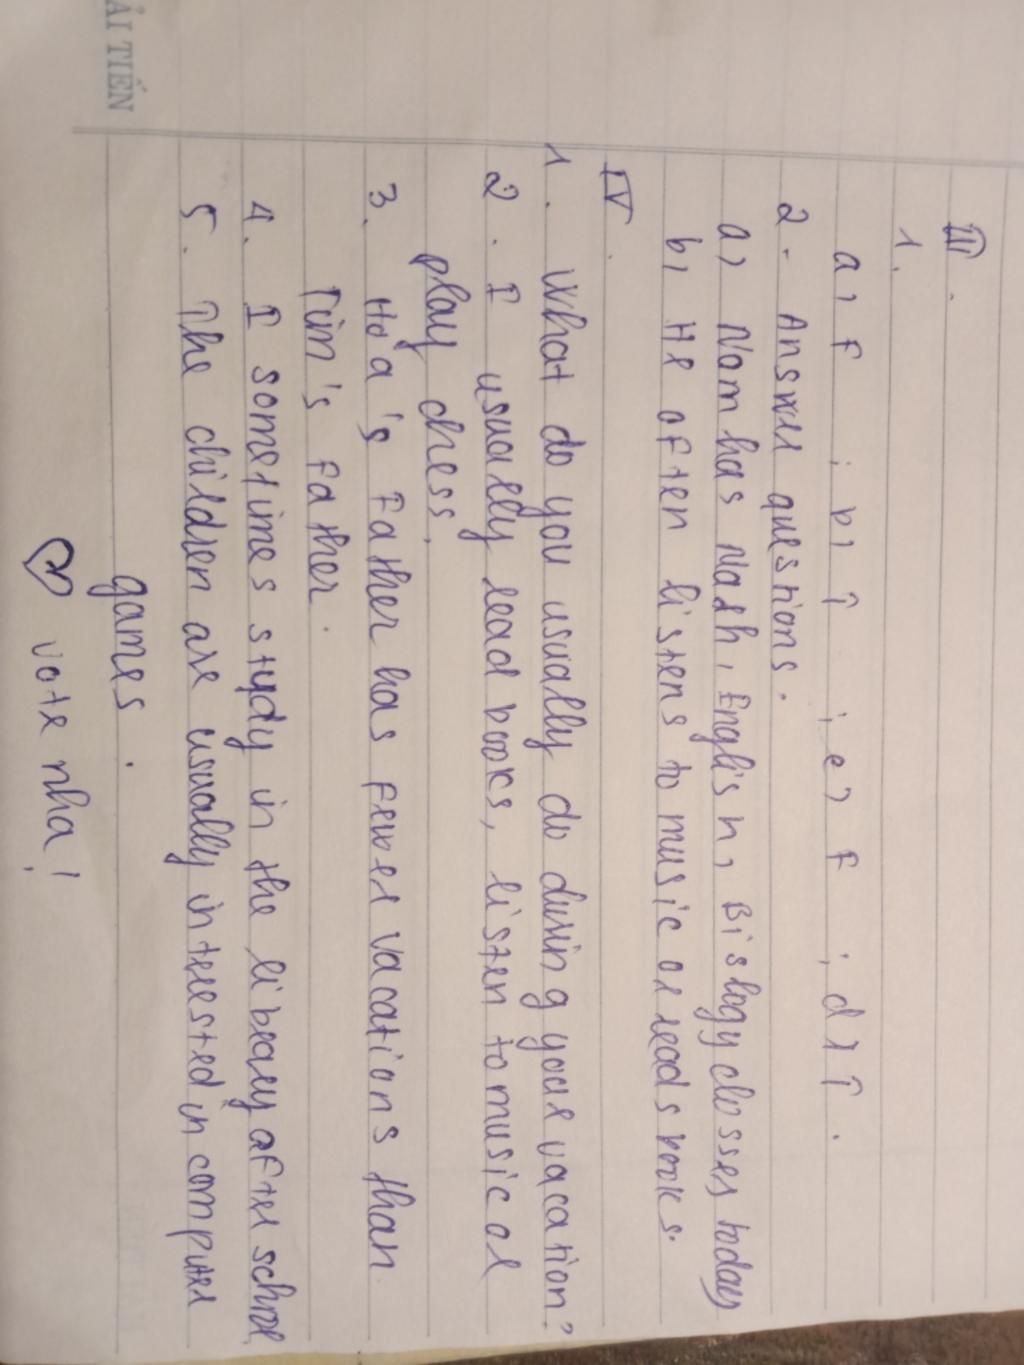 III.
1.
a, F ; b, T ; c, F ; d, T.
2. Answer questions.
a, Nam has Math, English, Biology closses today
b, He often listens to music or reads books.
IV.
1. What do you usually do during your vacation?
2. I usually read books, listen to music or
play chess.
3. Hoa's Father has fewer vacations than
Tim's Father.
4. I sometimes study in the library after school
5. The children are usually interested in computer
games.
♡ vote nha!
ẢI TIẾN